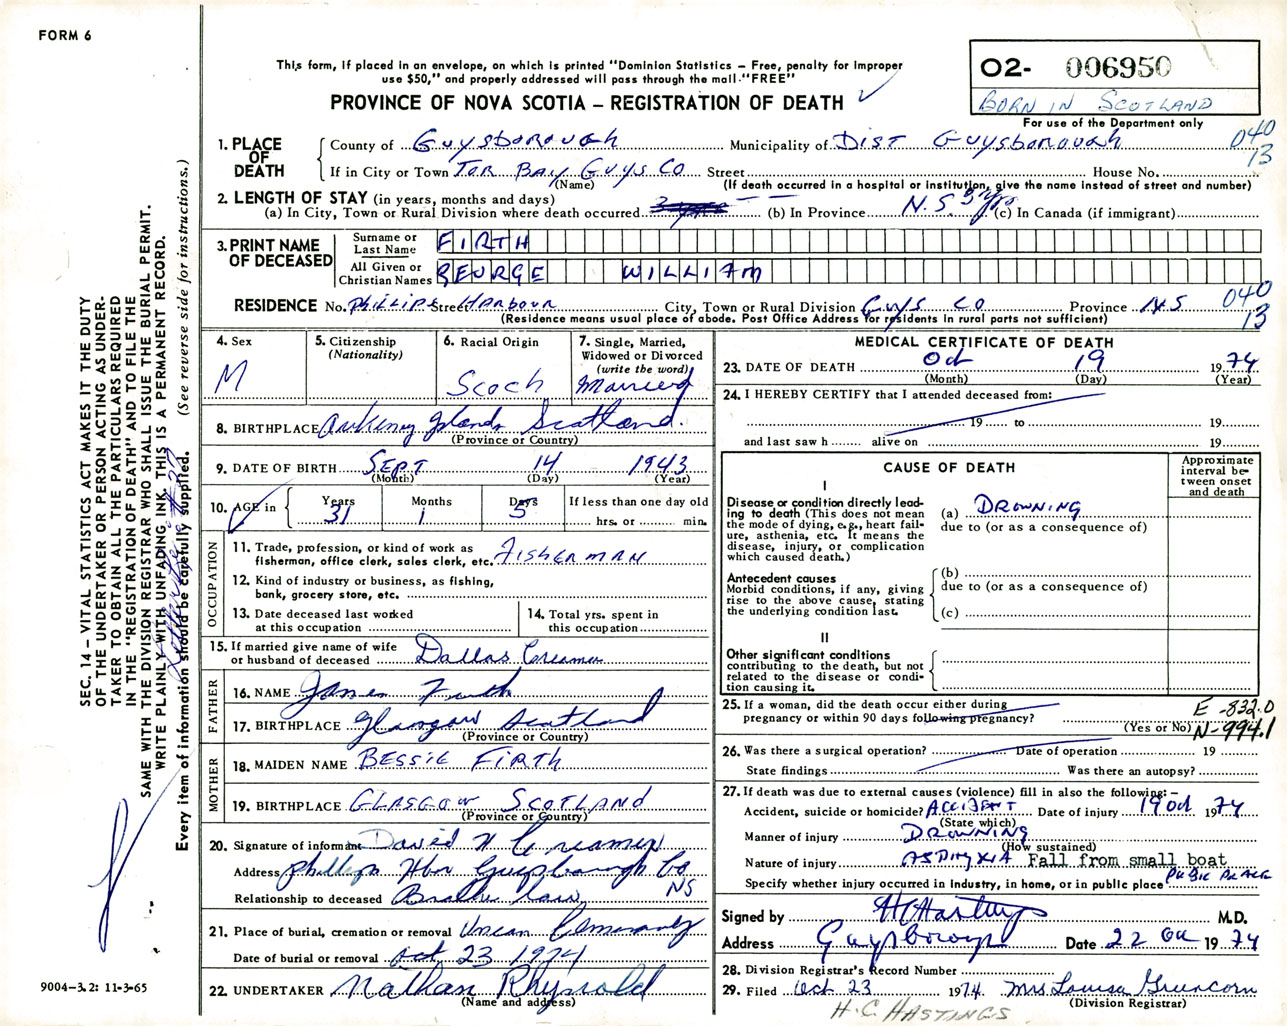 FORM 6
This form, if placed in an envelope, on which is printed "Dominion Statistics – Free, penalty for improper
use $50," and properly addressed will pass through the mail "FREE"
PROVINCE OF NOVA SCOTIA – REGISTRATION OF DEATH
02- 006950
BORN IN SCOTLAND
For use of the Department only
1. PLACE OF DEATH
County of Guysborough Municipality of Dist Guysborough 040
If in City or Town Tor Bay Guys Co Street House No. 13
(Name) (If death occurred in a hospital or institution, give the name instead of street and number)
2. LENGTH OF STAY (in years, months and days)
(a) In City, Town or Rural Division where death occurred (b) In Province N.S. 3 yrs (c) In Canada (if immigrant)
3. PRINT NAME OF DECEASED
Surname or Last Name FIRTH
All Given or Christian Names GEORGE WILLIAM
RESIDENCE No. Phillips Street Harbour City, Town or Rural Division Guys Co Province N.S 040
(Residence means usual place of abode. Post Office Address for residents in rural parts not sufficient) 13
4. Sex M
5. Citizenship (Nationality)
6. Racial Origin Scoch
7. Single, Married, Widowed or Divorced (write the word) Married
8. BIRTHPLACE Arkeney Islands Scotland.
(Province or Country)
9. DATE OF BIRTH Sept 14 1943
(Month) (Day) (Year)
10. AGE in Years 31 Months 1 Days 5 If less than one day old hrs. or min.
OCCUPATION
11. Trade, profession, or kind of work as
fisherman, office clerk, sales clerk, etc. FISHERMAN
12. Kind of industry or business, as fishing,
bank, grocery store, etc.
13. Date deceased last worked
at this occupation
14. Total yrs. spent in
this occupation
15. If married give name of wife
or husband of deceased Dallas Creamer
FATHER
16. NAME James Firth
17. BIRTHPLACE Glasgow Scotland
(Province or Country)
MOTHER
18. MAIDEN NAME BESSIE FIRTH
19. BIRTHPLACE GLASGOW SCOTLAND
(Province or Country)
20. Signature of informant David H Creamer
Address Phillips Hbr Guysborough Co
NS
Relationship to deceased Brother law
21. Place of burial, cremation or removal Cemetary
Date of burial or removal Oct 23 1974
22. UNDERTAKER Nathan Rhynold
(Name and address)
MEDICAL CERTIFICATE OF DEATH
23. DATE OF DEATH Oct 19 1974
(Month) (Day) (Year)
24. I HEREBY CERTIFY that I attended deceased from:
19 to 19
and last saw h alive on 19
CAUSE OF DEATH
Approximate interval between onset and death
I
Disease or condition directly lead-
ing to death (This does not mean
the mode of dying, e.g., heart fail-
ure, asthenia, etc. It means the
disease, injury, or complication
which caused death.)
(a) DROWNING
due to (or as a consequence of)
Antecedent causes
Morbid conditions, if any, giving
rise to the above cause, stating
the underlying condition last.
(b)
due to (or as a consequence of)
(c)
II
Other significant conditions
contributing to the death, but not
related to the disease or condi-
tion causing it.
25. If a woman, did the death occur either during
pregnancy or within 90 days following pregnancy?
(Yes or No)
E-832.0
N-994.1
26. Was there a surgical operation? Date of operation 19
State findings Was there an autopsy?
27. If death was due to external causes (violence) fill in also the following:–
Accident, suicide or homicide? ACCIDENT Date of injury 19 Oct 1974
(State which)
Manner of injury DROWNING
(How sustained)
Nature of injury ASPHYXIA Fall from small boat
Specify whether injury occurred in industry, in home, or in public place PUBLIC PLACE
Signed by H C Hastings M.D.
Address Guysborough Date 22 Oct 1974
28. Division Registrar's Record Number
29. Filed Oct 23 1974. Mrs Louisa Gruncorn
(Division Registrar)
H.C. HASTINGS
SEC. 14 – VITAL STATISTICS ACT MAKES IT THE DUTY
OF THE UNDERTAKER OR PERSON ACTING AS UNDER-
TAKER TO OBTAIN ALL THE PARTICULARS REQUIRED
IN THE "REGISTRATION OF DEATH" AND TO FILE THE
SAME WITH THE DIVISION REGISTRAR WHO SHALL ISSUE THE BURIAL PERMIT.
WRITE PLAINLY WITH UNFADING INK. THIS IS A PERMANENT RECORD.
Every item of information should be carefully supplied. (See reverse side for instructions.)
9004-3.2: 11-3-65